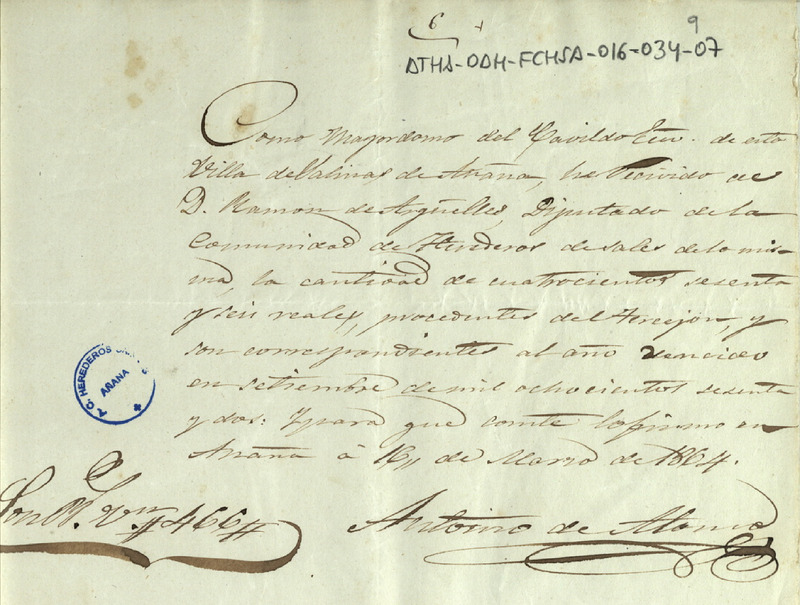 6 9
ATHA-DAH-FCHSA-016-034-07
Como Mayordomo del Cavildo Ecco. de esta
Villa de Salinas de Añana, he Recivido de
D. Ramon de Argüelles, Diputado de la
Comunidad de Herederos de sales de la mis-
ma, la cantidad de cuatrocientos sesenta
y seis reales, procedentes del Torrejon, y
son correspondientes al año vencido
en setiembre de mil ochocientos sesenta
y dos: Y para que conste lo firmo en
Añana á 16, de Marzo de 1864.
Son Rs. Vn # 466 #
Antonino de Alonso
HEREDEROS
AÑANA